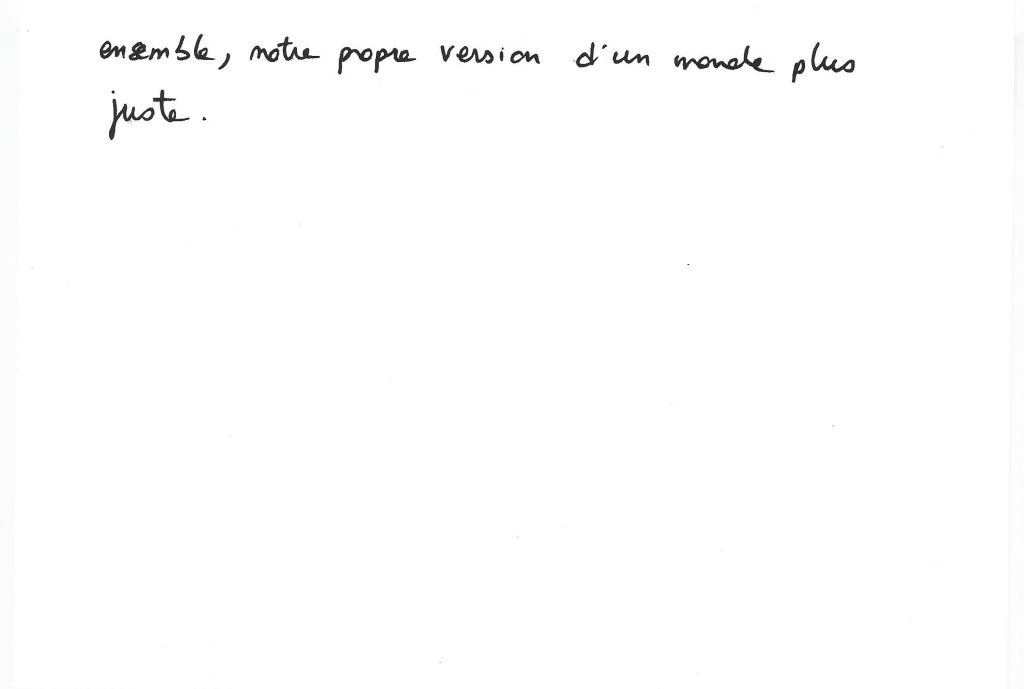 ensemble, notre propre version d'un monde plus
juste.